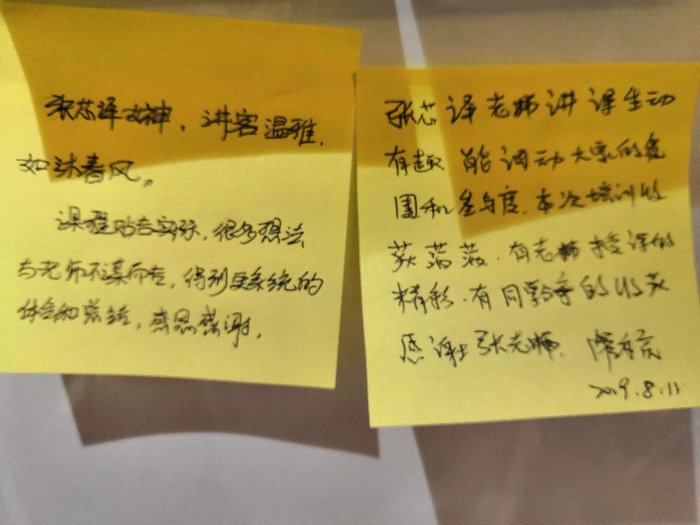 张芯译女神，讲客温雅，
如沐春风。
课程贴合实际，很多想法
与老师不谋而合，得到更系统的
体会和总结，感恩感谢。
张芯译老师讲课生动
有趣 能调动大家的氛
围和参与度.本次培训收
获满满.有老师授课的
精彩.有同学的收获
感谢张老师.
2019.8.11